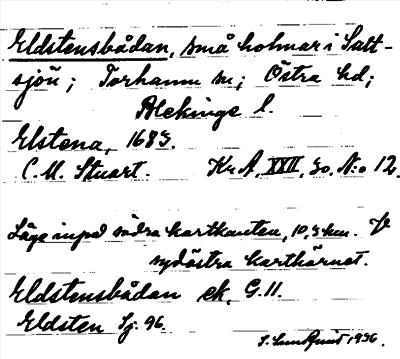 Eldstensbådan, små holmar i Salt-
sjön; Torhamn sn; Östra hd;
Blekinge l.
Elstena, 1683.
C. M. Stuart. Kr A, XXII, 30, N:o 12.
Låge inpå södra kartkanten, 10,3 km.
sydöstra karthörnet.
Eldstensbådan ek. G.11.
Eldsten Sj. 96.
1936.